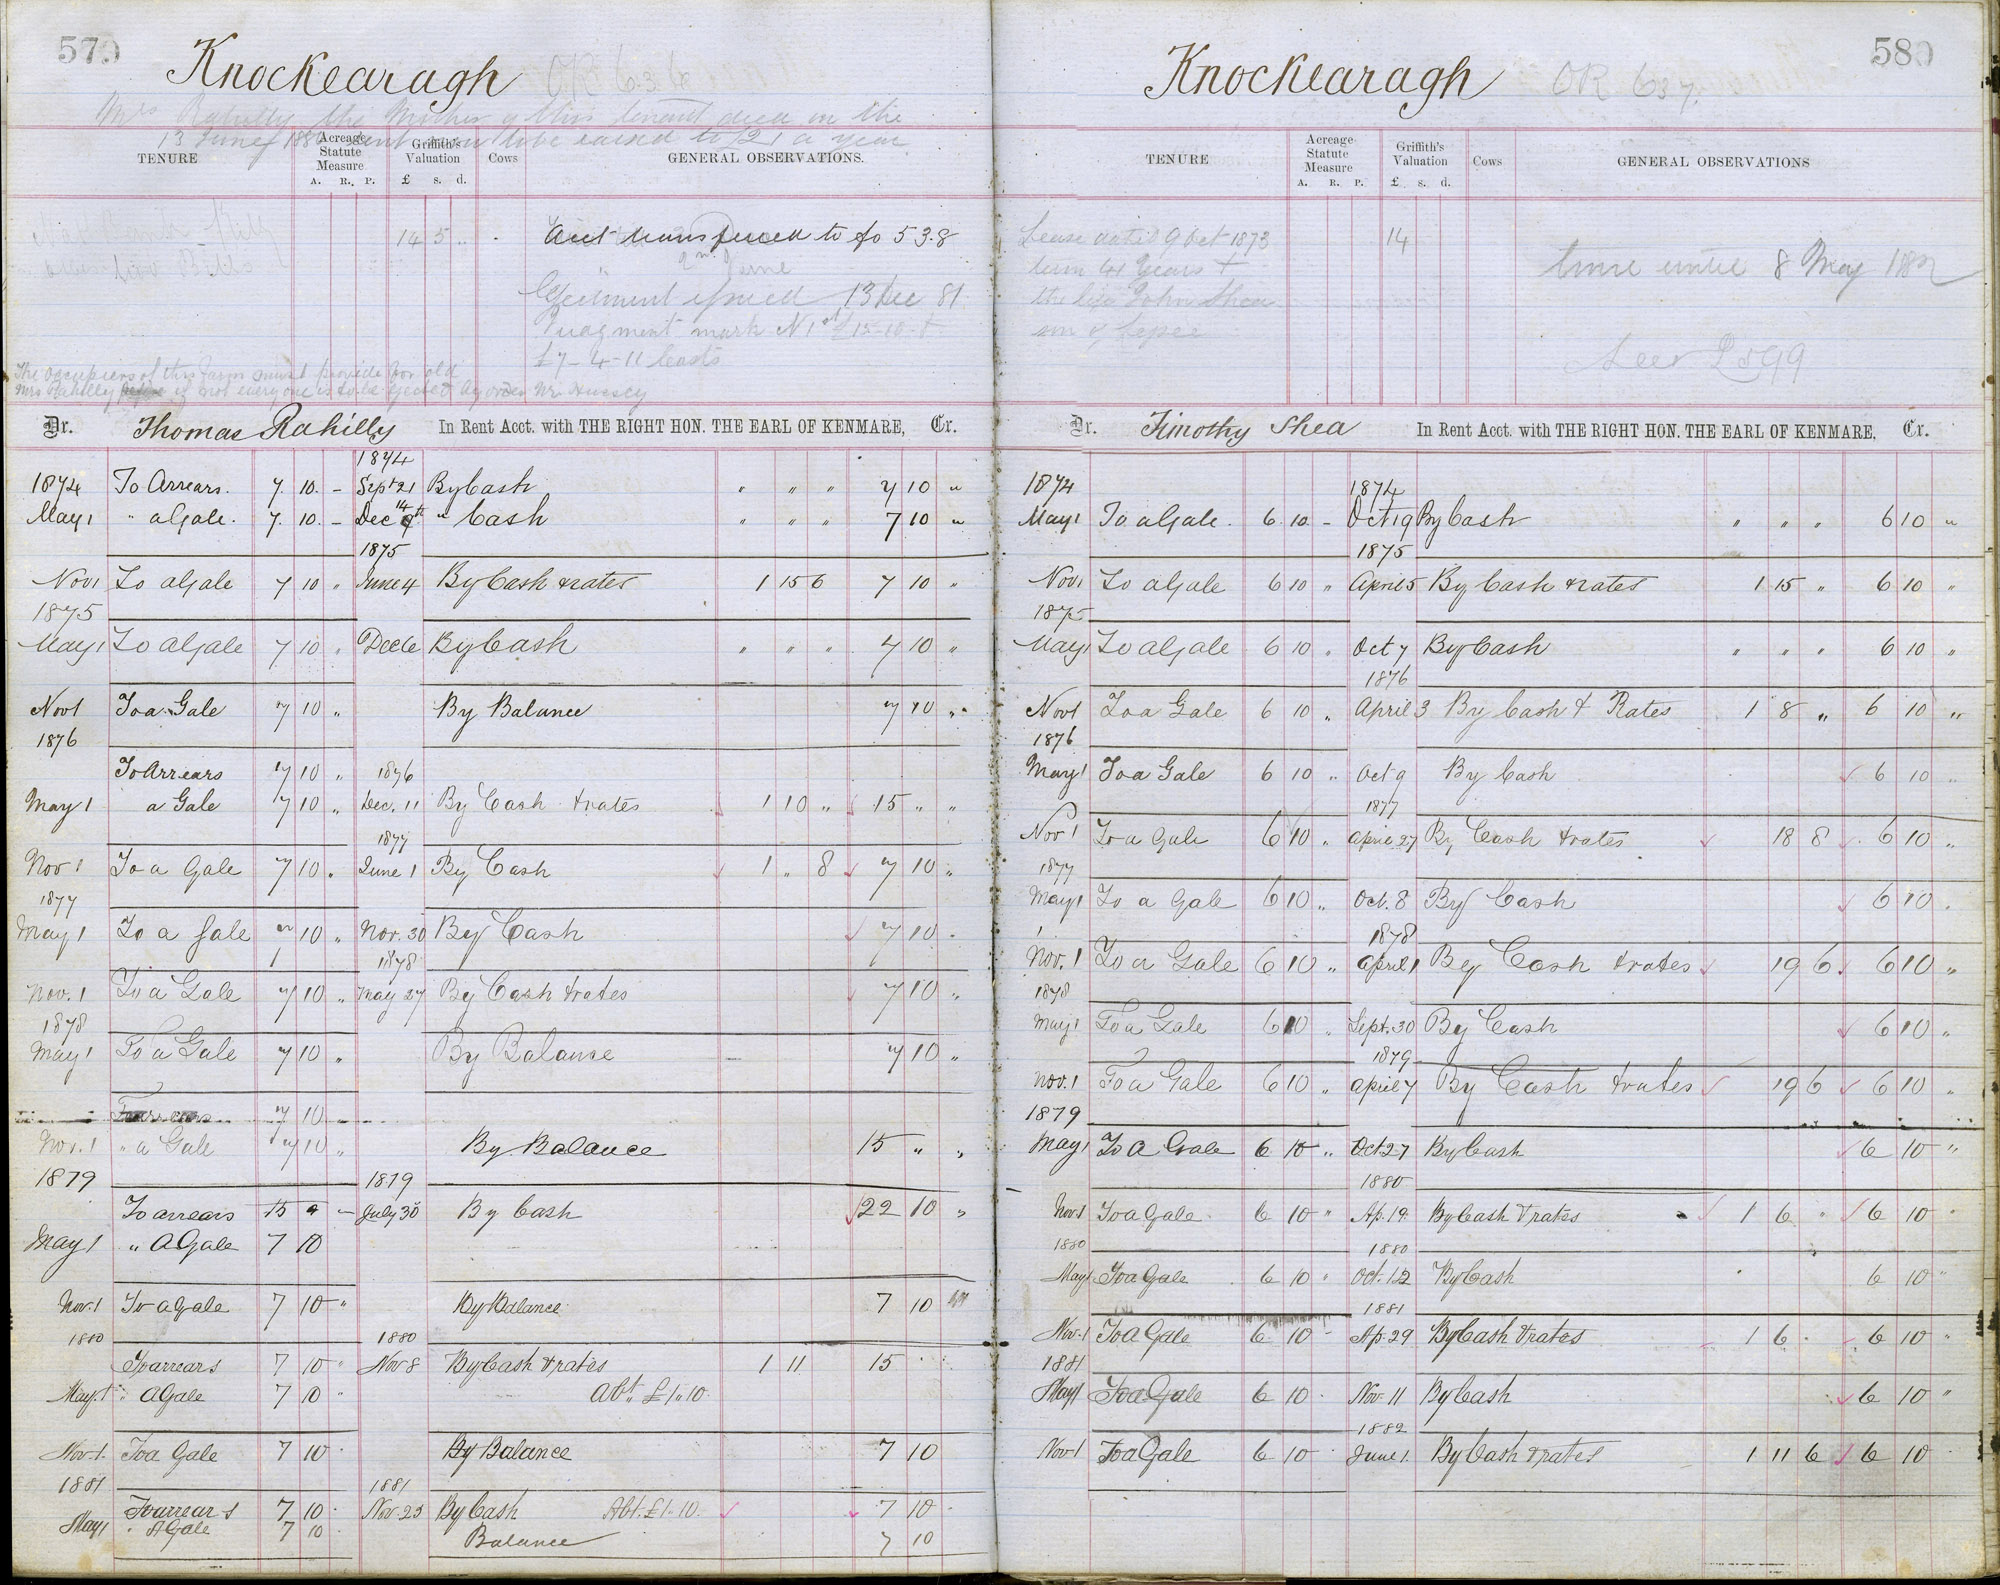 579
Knockearagh OR 636
Mrs Rahilly the Mother of this tenant died on the
13 June 1886 rent to be raised to £21 a year
TENURE
Acreage Statute Measure
A. R. P.
Griffith's Valuation
£ s. d.
Cows
GENERAL OBSERVATIONS.
14 5 ..
Acct transferred to fo 538
June
Ejectment issued 13 Dec 81
Judgment mark £15-10-
£7-4-11 Costs
The occupiers of this farm must provide for old
Mrs Rahilly if not everyone is to be ejected by order Mr Hussey
Dr. Thomas Rahilly In Rent Acct. with THE RIGHT HON. THE EARL OF KENMARE, Cr.
1874
1874 To Arrears. 7. 10. - Sept 21 By Cash " " " 7 10 "
May 1 " a Gale. 7. 10. - Dec 14th " Cash " " " 7 10 "
1875
Nov 1 To a Gale 7 10 " June 4 By Cash & rates 1 15 6 7 10 "
1875
May 1 To a Gale 7 10 " Dec 6 By Cash " " " 7 10 "
Nov 1 To a Gale 7 10 " By Balance 7 10 "
1876
To Arrears 7 10 " 1876
May 1 a Gale 7 10 " Dec. 11 By Cash & rates 1 10 " 15 " "
1877
Nov 1 To a Gale 7 10 " June 1 By Cash 1 " 8 7 10 "
1877
May 1 To a Gale 7 10 " Nov. 30 By Cash 7 10 -
1878
Nov. 1 To a Gale 7 10 " May 27 By Cash & rates 7 10 "
1878
May 1 To a Gale 7 10 " By Balance 7 10 "
To arrears 7 10
Nov. 1 " a Gale 7 10 " By Balance 15 " "
1879 1879
To arrears 15 " - July 30 By Cash 22 10 "
May 1 " A Gale 7 10
Nov. 1 To a Gale 7 10 " By Balance 7 10
1880 1880
To arrears 7 10 " Nov 8 By Cash & rates 1 11 15
May 1 " A Gale 7 10 " Abt. £1..10
Nov. 1 To a Gale 7 10 By Balance 7 10
1881 1881
To arrears 7 10 Nov 23 By Cash Abt. £1.10. 7 10
May 1 " A Gale 7 10 Balance 7 10
580
Knockearagh OR 637.
TENURE
Acreage Statute Measure
A. R. P.
Griffith's Valuation
£ s. d.
Cows
GENERAL OBSERVATIONS
Lease dated 9 Oct 1873
term 41 Years &
the life John Shea
son of Lessee
14
time until 8 May 1882
See 599
Dr. Timothy Shea In Rent Acct. with THE RIGHT HON. THE EARL OF KENMARE, Cr.
1874 1874
May 1 To a Gale. 6 10 - Oct 19 By Cash " " " 6 10 "
1875
Nov 1 To a Gale 6 10 " April 5 By Cash & rates 1 15 " 6 10 "
1875
May 1 To a Gale 6 10 " Oct 7 By Cash " " " 6 10 "
1876
Nov 1 To a Gale 6 10 " April 3 By Cash & Rates 1 8 " 6 10 "
1876
May 1 To a Gale 6 10 " Oct 9 By Cash 6 10 "
1877
Nov 1 To a Gale 6 10 " April 27 By Cash & rates 18 8 6 10 "
1877
May 1 To a Gale 6 10 " Oct. 8 By Cash 6 10 .
1878
Nov. 1 To a Gale 6 10 " April 1 By Cash & rates 19 6 6 10 "
1878
May 1 To a Gale 6 10 " Sept. 30 By Cash 6 10 "
1879
Nov. 1 To a Gale 6 10 " April 7 By Cash & rates 19 6 6 10 "
1879
May 1 To A Gale 6 10 " Oct 27 By Cash 6 10 "
1880
Nov 1 To a Gale 6 10 " Ap. 19 By Cash & rates 1 6 " 6 10
1880 1880
May 1 To a Gale 6 10 " Oct. 12 By Cash 6 10 "
1881
Nov. 1 To A Gale 6 10 - Ap. 29 By Cash & rates 1 6 . 6 10 "
1881
May 1 To a Gale 6 10 Nov. 11 By Cash 6 10 "
1882
Nov 1 To a Gale 6 10 June 1. By Cash & rates 1 11 6 6 10